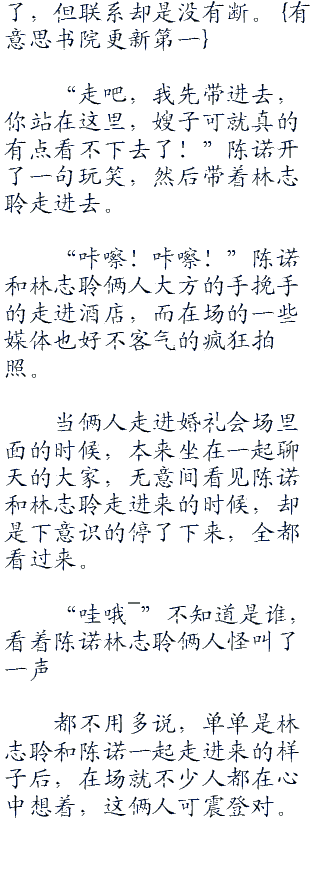 了，但联系却是没有断。{有
意思书院更新第一}
“走吧，我先带进去，
你站在这里，嫂子可就真的
有点看不下去了！”陈诺开
了一句玩笑，然后带着林志
聆走进去。
“咔嚓！咔嚓！”陈诺
和林志聆俩人大方的手挽手
的走进酒店，而在场的一些
媒体也好不客气的疯狂拍
照。
当俩人走进婚礼会场里
面的时候，本来坐在一起聊
天的大家，无意间看见陈诺
和林志聆走进来的时候，却
是下意识的停了下来，全都
看过来。
“哇哦¯”不知道是谁，
看着陈诺林志聆俩人怪叫了
一声
都不用多说，单单是林
志聆和陈诺一起走进来的样
子后，在场就不少人都在心
中想着，这俩人可震登对。